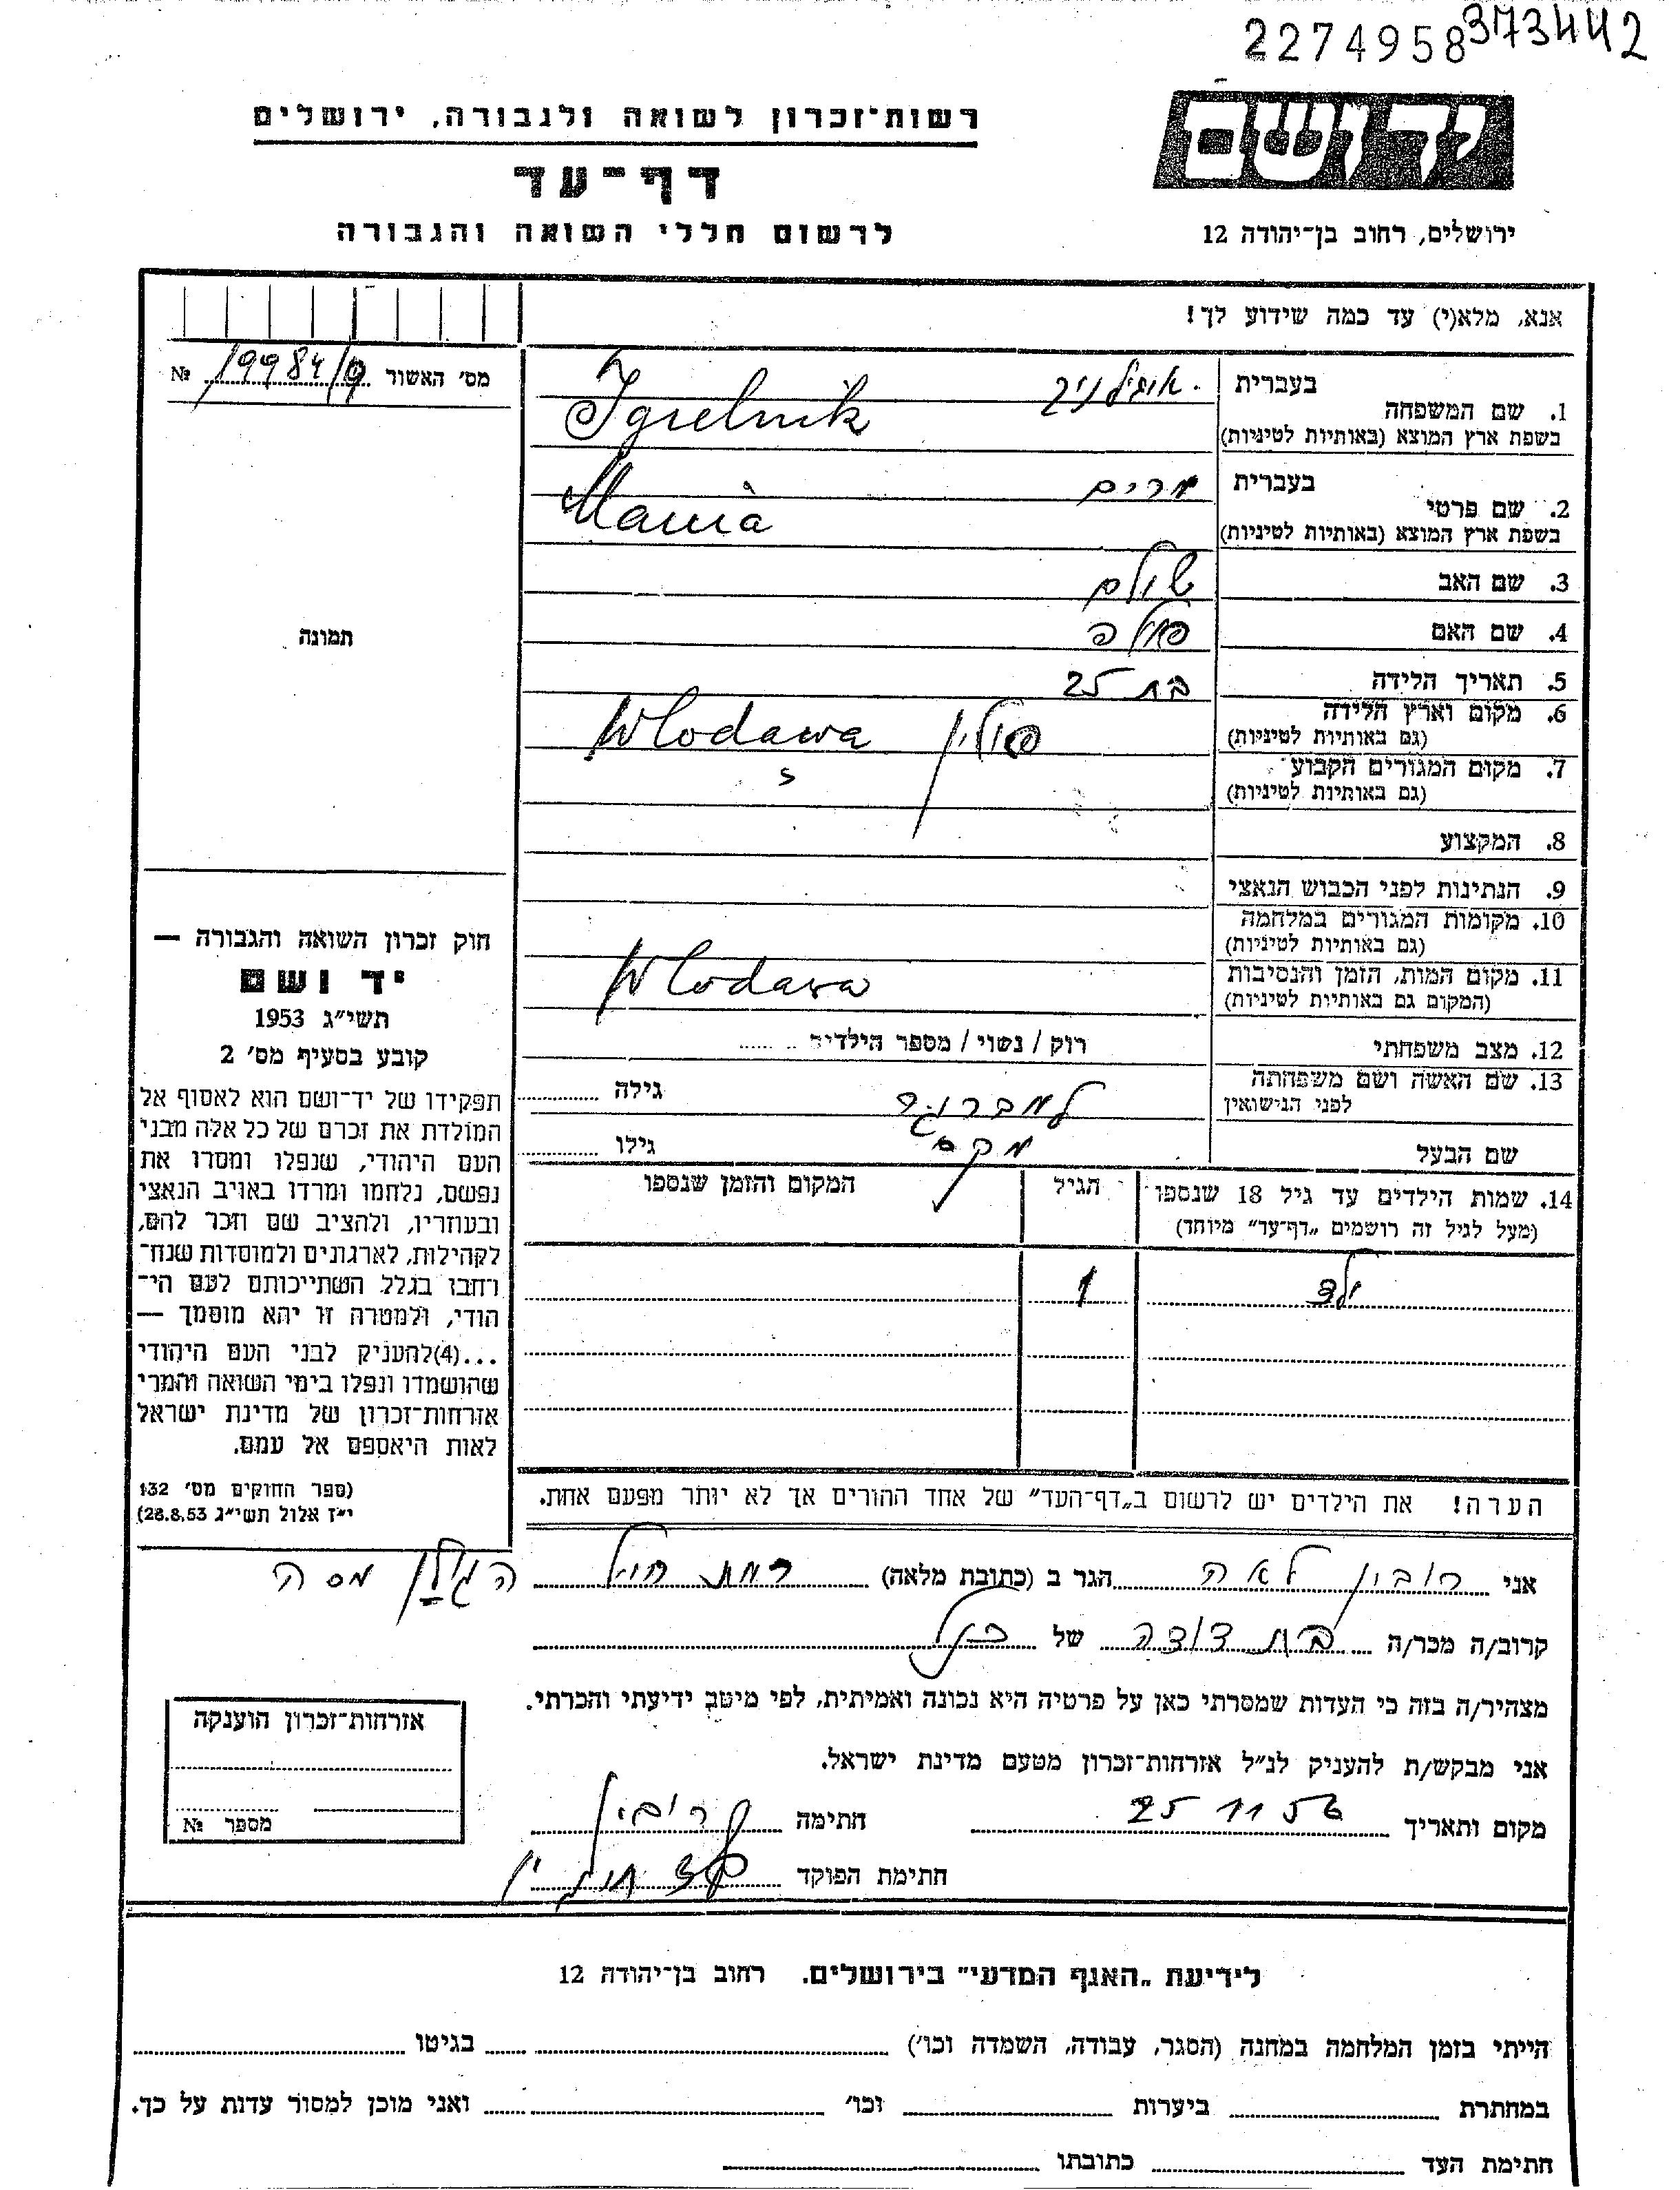 2274958 373442
יד ושם
רשות־זכרון לשואה ולגבורה, ירושלים
דף־עד
לרשום חללי השואה והגבורה
ירושלים, רחוב בן־יהודה 12
אנא, מלא(י) עד כמה שידוע לך!
מס' האשור 19984/ №
1. שם המשפחה בעברית
בשפת ארץ המוצא (באותיות לטיניות) Igrelnik
2. שם פרטי בעברית מרים
בשפת ארץ המוצא (באותיות לטיניות) Mania
3. שם האב שולם
4. שם האם פולה
5. תאריך הלידה בת 25
6. מקום וארץ הלידה פולין Wlodawa
(גם באותיות לטיניות)
7. מקום המגורים הקבוע
(גם באותיות לטיניות)
8. המקצוע
9. הנתינות לפני הכבוש הנאצי
10. מקומות המגורים במלחמה
(גם באותיות לטיניות)
11. מקום המות, הזמן והנסיבות Wlodawa
(המקום גם באותיות לטיניות)
12. מצב משפחתי רוק / נשוי / מספר הילדים
13. שם האשה ושם משפחתה
לפני הנישואין גילה
שם הבעל מקס גילו
14. שמות הילדים עד גיל 18 שנספו הגיל המקום והזמן שנספו
(מעל לגיל זה רושמים „דף־עד" מיוחד)
ילד 1
הערה! את הילדים יש לרשום ב„דף־העד" של אחד ההורים אך לא יותר מפעם אחת.
תמונה
חוק זכרון השואה והגבורה —
יד ושם
תשי"ג 1953
קובע בסעיף מס' 2
תפקידו של יד־ושם הוא לאסוף אל
המולדת את זכרם של כל אלה מבני
העם היהודי, שנפלו ומסרו את
נפשם, נלחמו ומרדו באויב הנאצי
ובעוזריו, ולהציב שם וזכר להם,
לקהילות, לארגונים ולמוסדות שנח־
רחבו בגלל השתייכותם לעם הי־
הודי, ולמטרה זו יהא מוסמך —
...(4)להעניק לבני העם היהודי
שהושמדו ונפלו בימי השואה והמרי
אזרחות־זכרון של מדינת ישראל
לאות היאספם אל עמם.
(ספר החוקים מס' 132
י"ז אלול תשי"ג 28.8.53)
אני רובין לאה הגר ב (כתובת מלאה) רמת חיל
קרוב/ה מכר/ה בת דודה של הנ"ל
מצהיר/ה בזה כי העדות שמסרתי כאן על פרטיה היא נכונה ואמיתית, לפי מיטב ידיעתי והכרתי.
אני מבקש/ת להעניק לנ"ל אזרחות־זכרון מטעם מדינת ישראל.
מקום ותאריך 25 11 56 חתימה רובין
חתימת הפוקד
אזרחות־זכרון הוענקה
מספר №
לידיעת „האגף המדעי" בירושלים. רחוב בן־יהודה 12
הייתי בזמן המלחמה במחנה (הסגר, עבודה, השמדה וכו') בגיטו
במחתרת ביערות וכו' ואני מוכן למסור עדות על כך.
חתימת העד כתובתו